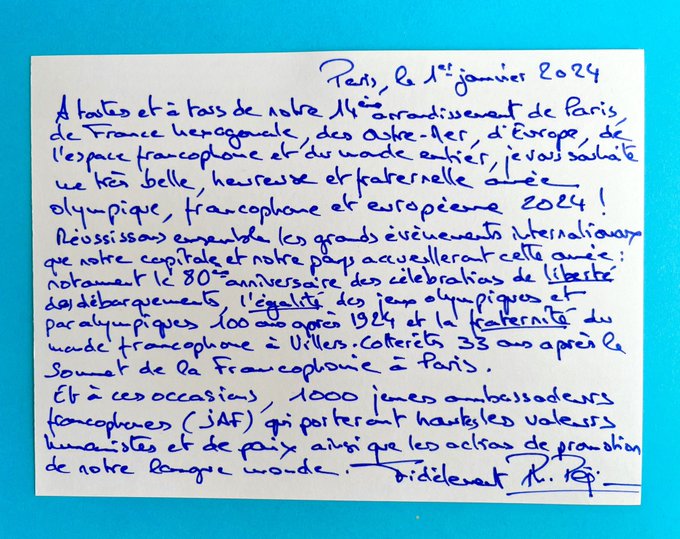 Paris, le 1er janvier 2024
A toutes et à tous de notre 14ème arrondissement de Paris,
de France hexagonale, des Outre-Mer, d'Europe, de
l'espace francophone et du monde entier, je vous souhaite
une très belle, heureuse et fraternelle année
olympique, francophone et européenne 2024 !
Réussissons ensemble les grands évènements internationaux
que notre capitale et notre pays accueilleront cette année :
notamment le 80ème anniversaire des célébrations de liberté
des débarquements, l'égalité des jeux olympiques et
paralympiques 100 ans après 1924 et la fraternité du
monde francophone à Villers-Cotterêts 33 ans après le
Sommet de la Francophonie à Paris.
Et à ces occasions, 1000 jeunes ambassadeurs
francophones (JAF) qui porteront hautes les valeurs
humanistes et de paix ainsi que les actions de promotion
de notre langue monde. Fidèlement